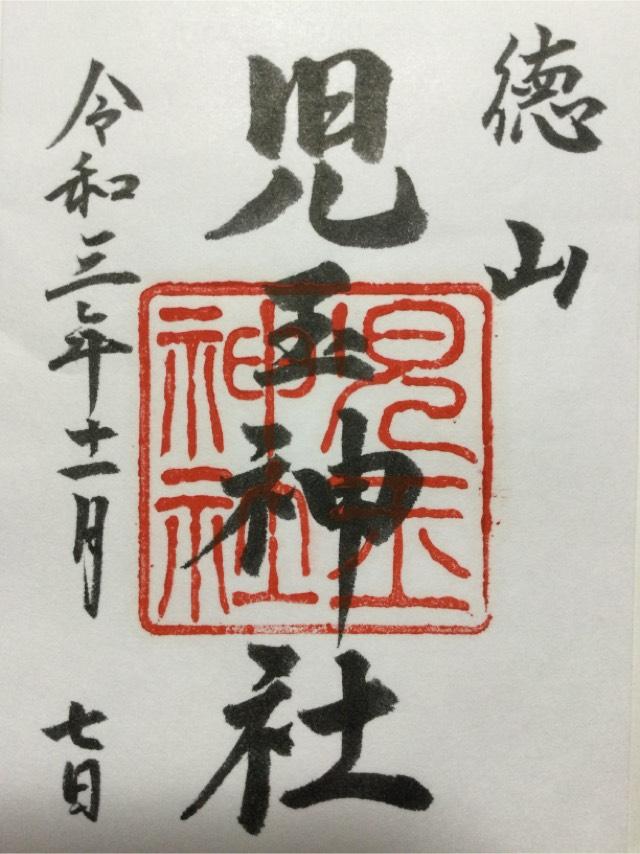 徳山
児玉神社
児玉神社
令和三年十一月七日